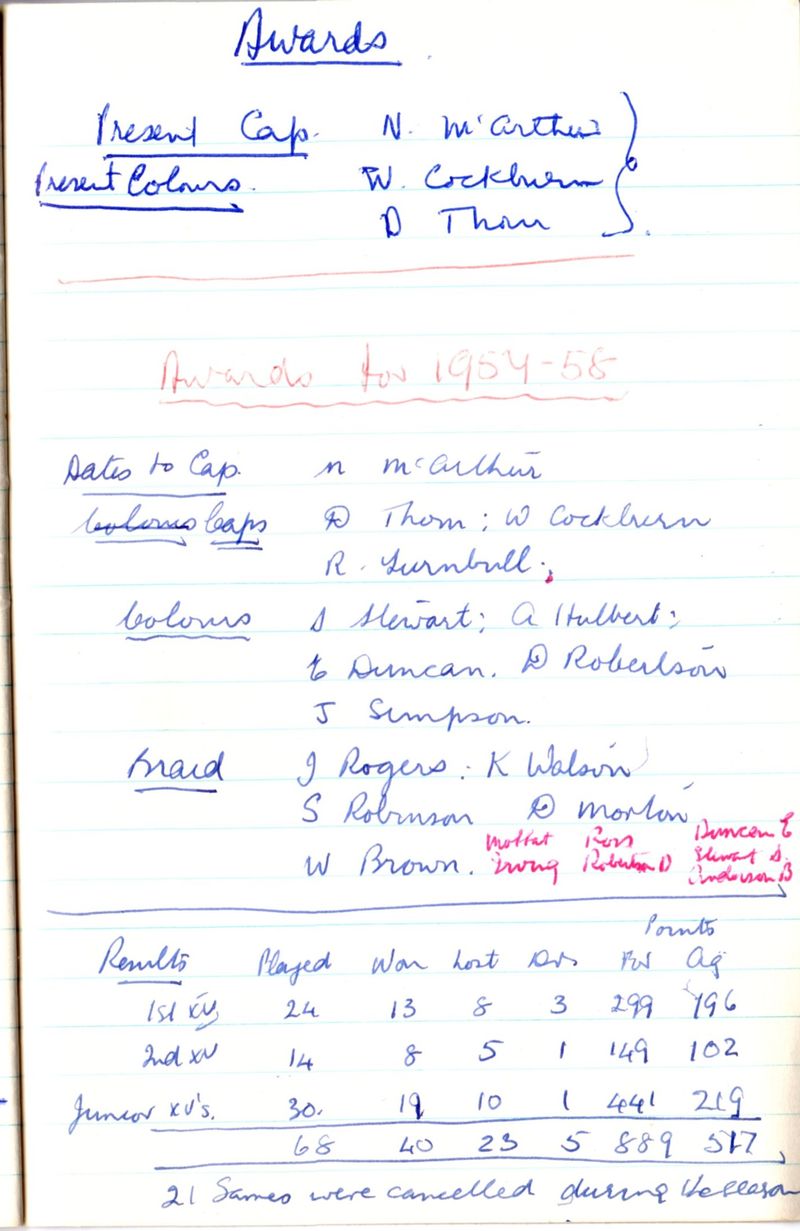 Awards
Present Cap. N. McArthur
Present Colours. W. Cockburn
D Thom
Awards for 1957-58
Dates to Cap. N McArthur
Colours Caps D Thom; W Cockburn
R. Turnbull.
Colours S Stewart; A Hulbert;
E Duncan. D Robertson
J Simpson.
Braid J Rogers. K Watson
S Robinson D Morton
W Brown. Moffat Ross Duncan E
Irving Robertson D Stewart S.
Anderson B
Points
Results Played Won Lost Drs For Ag
1st XV 24 13 8 3 299 196
2nd XV 14 8 5 1 149 102
Junior XV's. 30. 19 10 1 441 219
68 40 23 5 889 517
21 Games were cancelled during the season